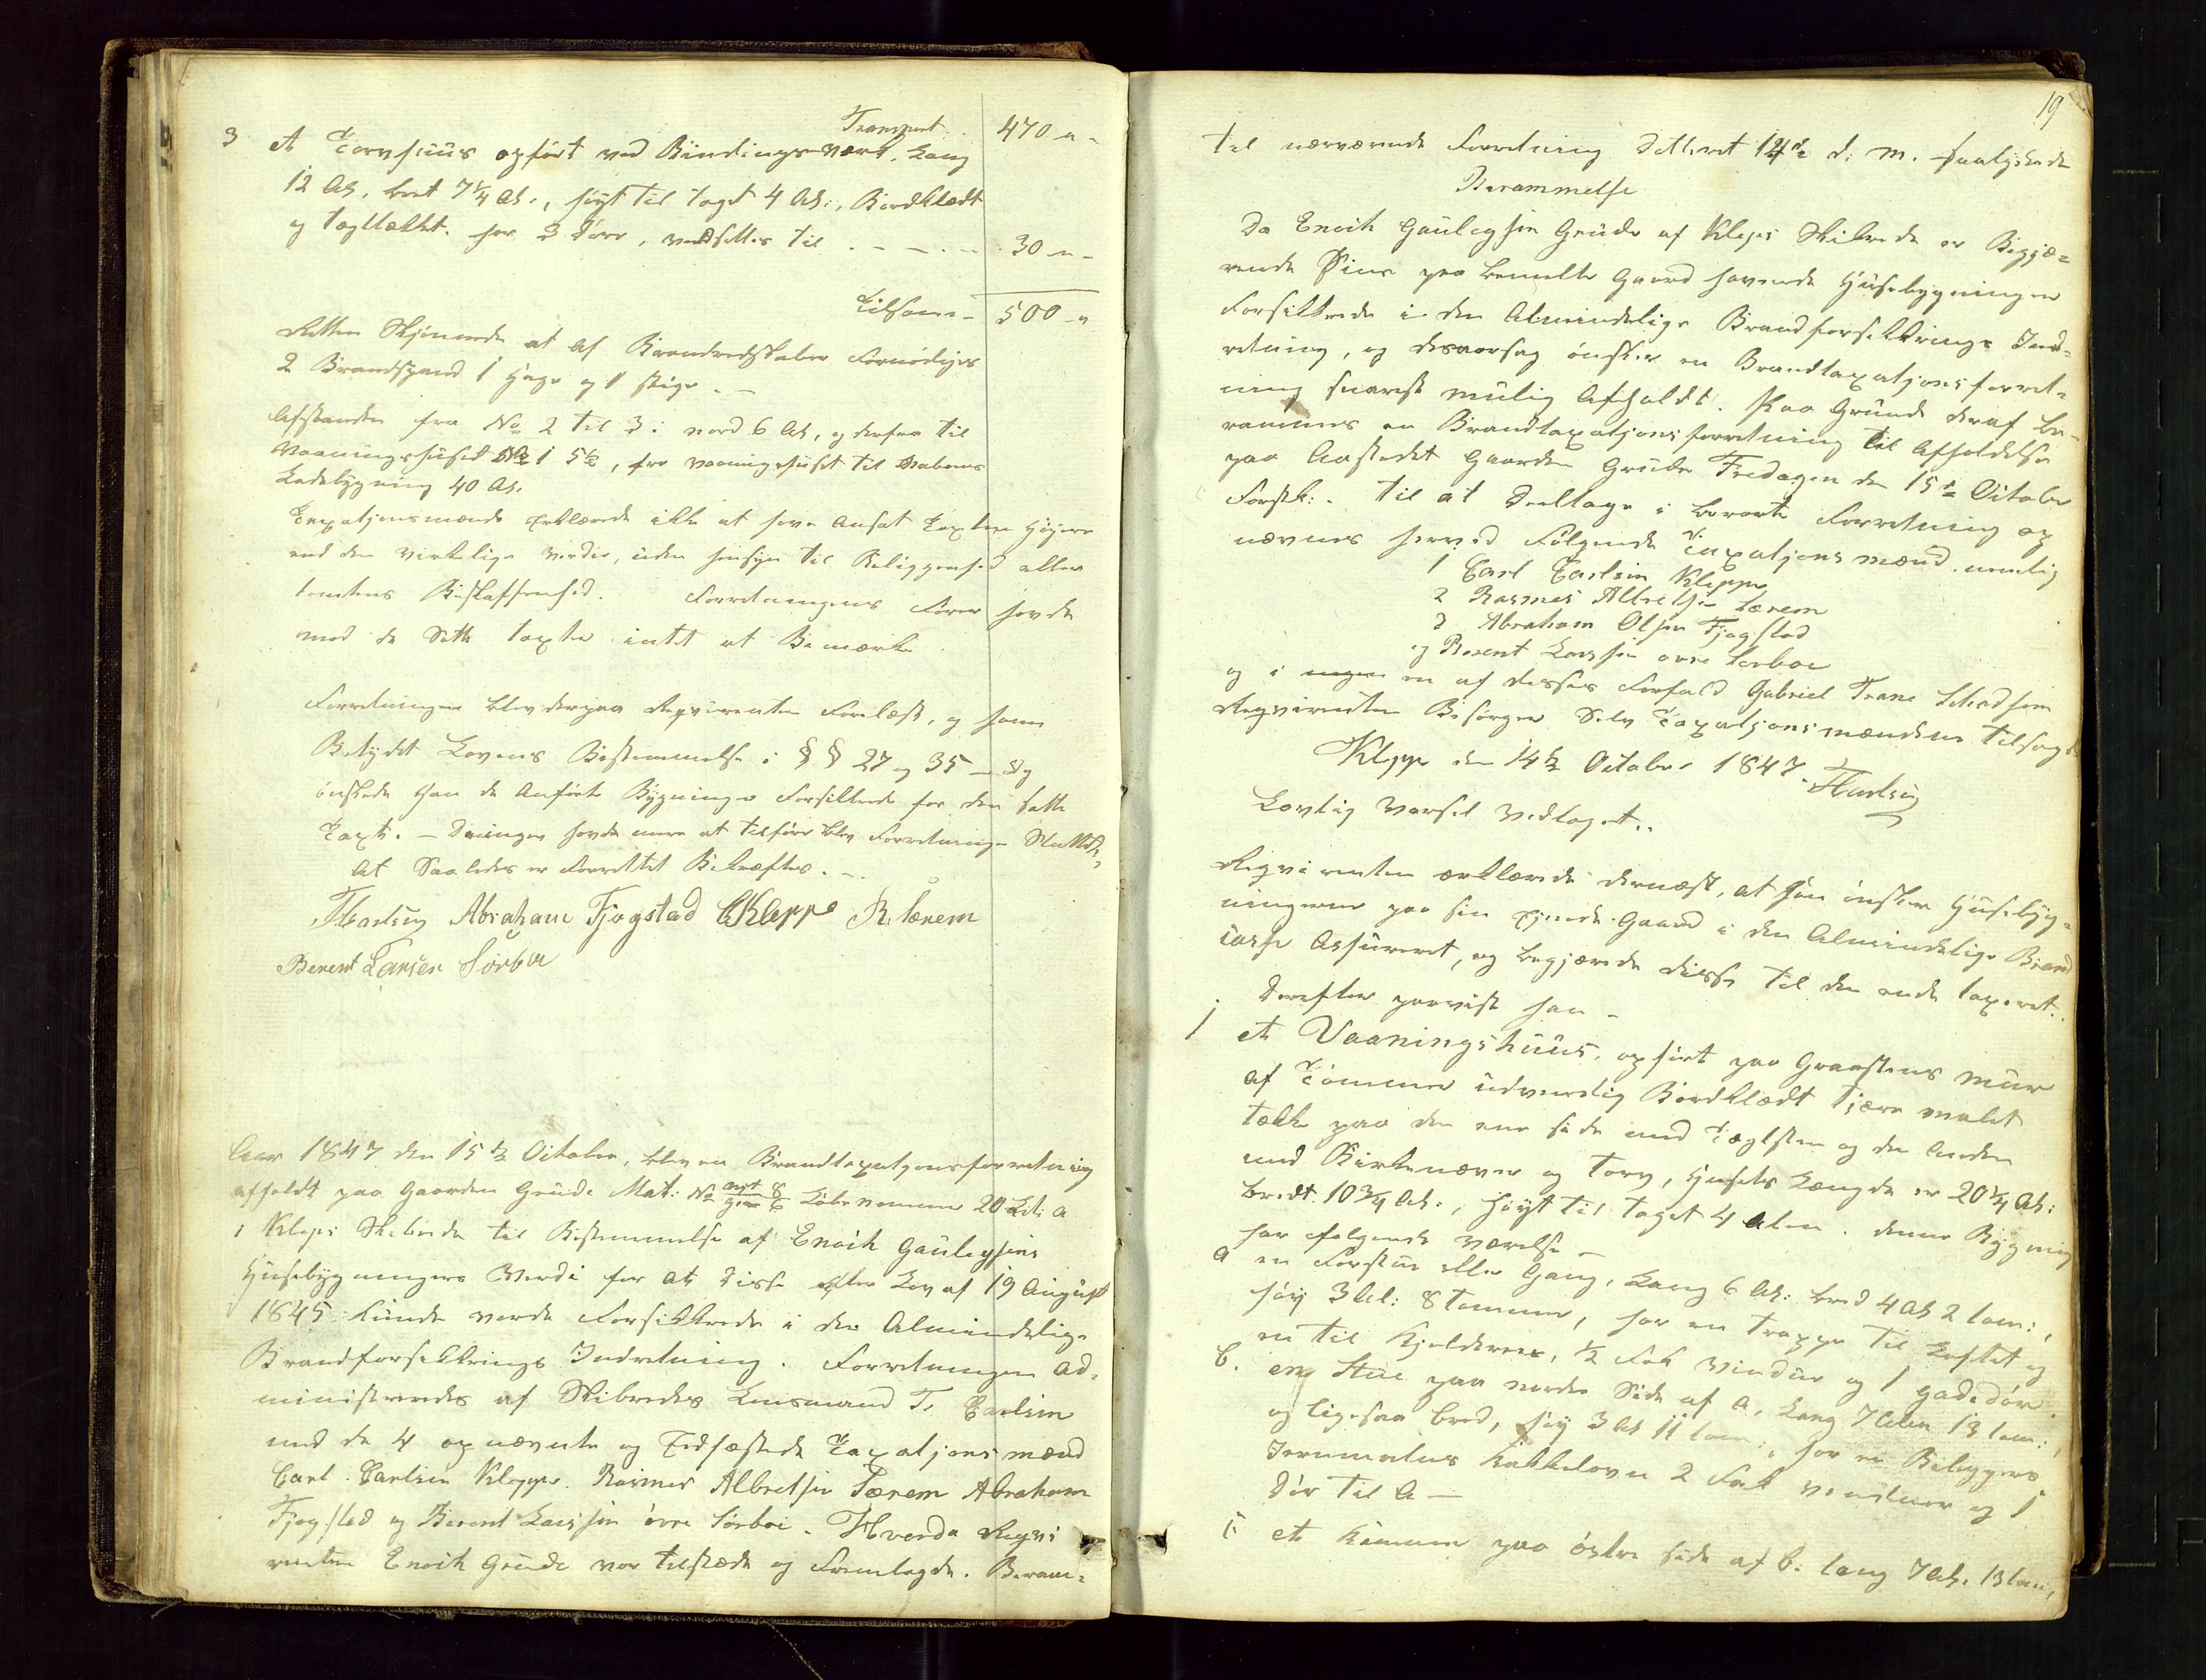 Transport 470 "
3 et Torvhuus opført ved Bindingsverk, Lang
12 Al. bret 7 1/4 Al., høyt til taget 4 Al., Bordklædt
og tægltækket. har 3 Døre, værdsættes til 30 "
Tilsam- 500 "
Retten Skjønnede at af Brandredskaber Fornødiges
2 Brandspand 1 Hage og 1 Stige. –
Afstanden fra No 2 til 3 i nord 6 Al, og derfra til
Vaaningshuset No 1 5 1/2, fra vaaningshuset til Naboens
Ladebygning 40 Al.
Taxatjonsmænde erklærede ikke at have Ansat Taxten Høyere
end den virkelige værdie, uden hensyn til Beliggenhed eller
tomtens Beskaffenhed. Forretningens Fører havde
mod de Satte taxter intet at Bemærke
Forretningen blev derpaa Reqvirenten Forelæst, og ham
Betydet Lovens Bestemmelse i § § 27 og 35 – Og
ønskede han de Anførte Bygninger Forsikkrede for den satte
Taxt. – Da ingen havde mere at tilføre blev Forretningen Sluttet,
At Saaledes er Forrettet Bekræftes. –
TCarlsen Abraham Fjogstad CKleppe R. Særem
Berent Larsen Sørbø
Aar 1847 den 15de October, blev en Brandtaxatjonsforretning
afholdt paa Gaarden Grude Mat: No nyt 8 gm 6 Løbenummer 20 Lit: a
i Kleps Skibrede til Bestemmelse af Enoch Gaulegsens
Huusebygningers Værdi for at disse efter Lov af 19 August
1845 kunde vorde Forsikkrede i den Almindelige
Brandforsikkrings Indretning. Forretningen Ad-
ministreredes af Skibredes Lensmand T. Carlsen
med de 4 opnævnte og Edfæstede Taxatjonsmænd
Carl Carlsen Kleppe. Rasmus Albretsen Særem Abraham
Fjogstad og Berent Larssen øvre Sørboe. – Hvorda Reqvi
renten Enoch Grude var tilstæde og Fremlagde. Beram-
19
til nærværende Forretning Datteret 14de d: M. saalydende
Berammelse
Da Enoch Gaulegsen Grude af Kleps Skibrede er Begjæ-
rende Sine paa bemelte Gaard havende Huusebygninger
Forsikkrede i den Almindelige Brandforsikkrings Ind-
retning, og desaarsag ønsker en Brandtaxatjonsforret-
ning snarest mulig Afholdt. Paa Grund deraf be-
rammes en Brandtaxatjonsforretning til Afholdelse
paa Aastedet Gaarden Grude Fredagen den 15de Octobr
Førstk:. Til at deeltage i berørte Forretning op
nævnes herved Følgende Taxatjonsmænd nemlig
1 Carl Carlsen Kleppe
2 Rasmus Albretsen Særem
3 Abraham Olsen Fjogstad
og Berent Larssen øvre Sørboe
og i en af disses Forfald Gabriel Trane
Reqvirenten Besørger Selv Taxatjonsmændene tilsagde
Klepp den 14de October 1847. TCarlsen
Lovlig Varsel Vedtaget..
Reqvirenten erklærede dernæst, at han ønsker Huusebyg-
ningerne paa sin Ejende Gaard i den Almindelige Brand
casse Assureret, og begjærede disse til den ende taxeret.
Derefter paaviste han –
1 et Vaaningshuus, opført paa Graasteens muur
af Tømmer udvendig Bordklædt Tjære malet
tække paa den ene side med Tæglsten og den Anden
med Birkenæver og Torv, Husets Længde er 20 1/4 Al:
bredt 10 3/4 Al:, høyt til taget 4 Alen. denne Bygning
har følgende værelse –
a en Forstue eller Gang, Lang 6 Al: bred 4 Al 2 tom:,
høy 3 Al: 8 Tommer, har en trappe til Loftet og
en til Kjelderen, 1/2 Fak Vindue og 1 Gadedør.
b. en Stue paa nordre Side af a, Lang 7 Alen 13 tom:,
og ligesaa bred, høy 3 Al 11 tom:, har en Beleggers
Jernmalms Kakkelovn 2 Fak venduer og 1
Dør til a –
c: et Kammer paa østre side af b: lang 7 Al: 13 tom,